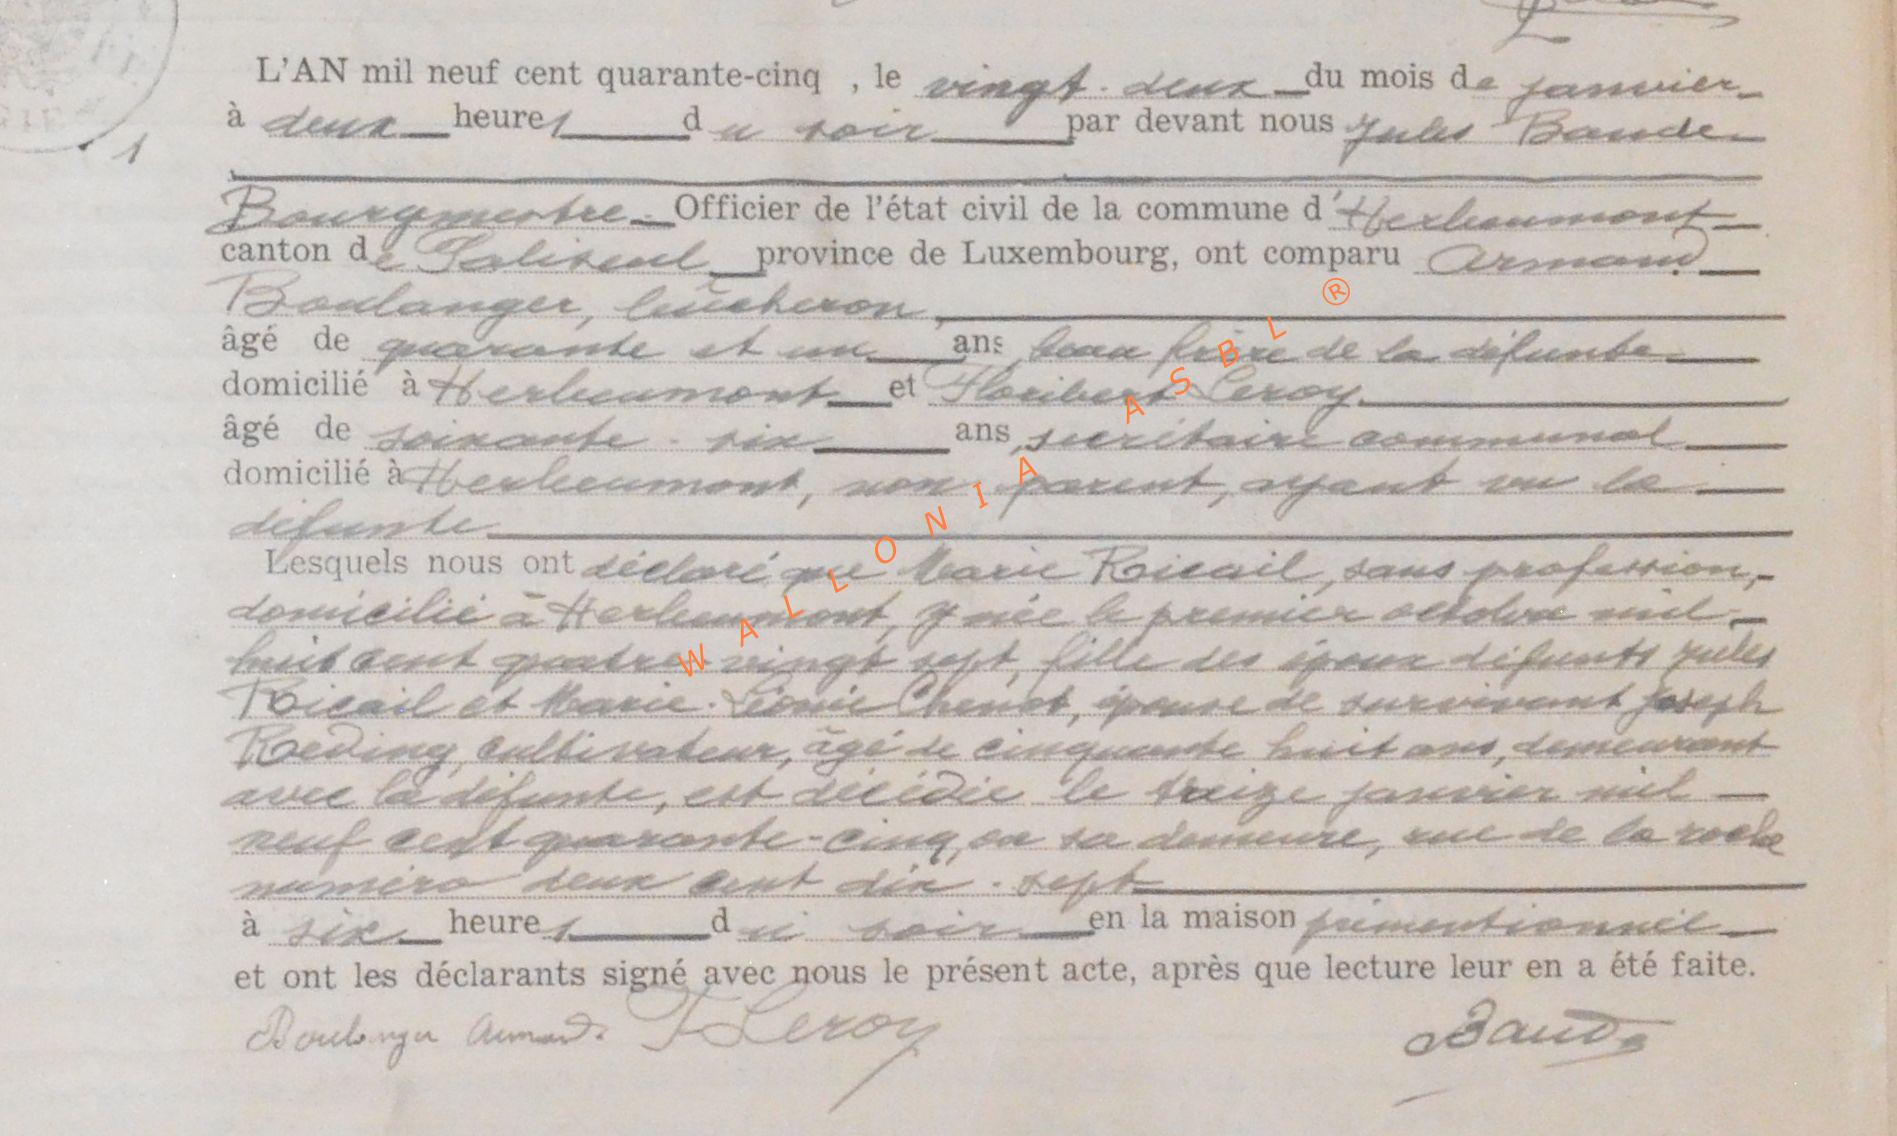 L'AN mil neuf cent quarante-cinq , le vingt-deux du mois de janvier
à deux heures du soir par devant nous Jules Baude
Bourgmestre Officier de l'état civil de la commune d'Herbeumont
canton de Paliseul province de Luxembourg, ont comparu Armand
Boulanger, bûcheron,
âgé de quarante et un ans, beau frère de la défunte
domicilié à Herbeumont et Floribert Leroy
âgé de soixante-six ans, secrétaire communal
domicilié à Herbeumont, non parent, ayant vu la
défunte
Lesquels nous ont déclaré que Marie Ricail, sans profession,
domicilié à Herbeumont, y née le premier octobre mil
huit cent quatre vingt sept, fille des époux défunts Jules
Ricail et Marie-Léonie Chenot, épouse de survivant Joseph
Roeding, cultivateur, âgé de cinquante huit ans, demeurant
avec la défunte, est décédée le treize janvier mil
neuf cent quarante-cinq, en sa demeure, rue de la roche
numéro deux cent dix-sept
à six heures du soir en la maison prémentionnée
et ont les déclarants signé avec nous le présent acte, après que lecture leur en a été faite.
Boulanger Armand F Leroy Baude
WALLONIA ASBL ®
1